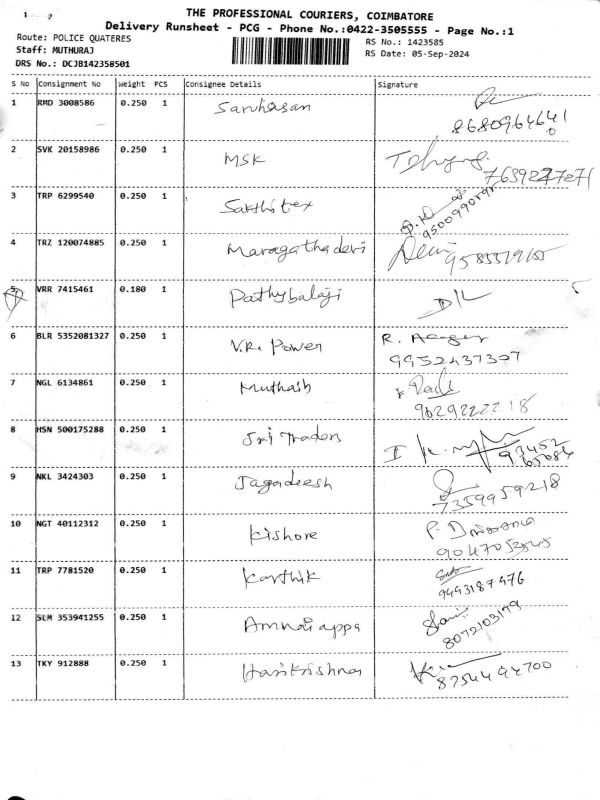 THE PROFESSIONAL COURIERS, COIMBATORE
Delivery Runsheet - PCG - Phone No.:0422-3505555 - Page No.:1
Route: POLICE QUATERES
RS No.: 1423585
Staff: MUTHURAJ
RS Date: 05-Sep-2024
DRS No.: DCJB142358501
S No Consignment No Weight PCS Consignee Details Signature
1 RMD 3008586 0.250 1 Saruhasan
8680964641
2 SVK 20158986 0.250 1 MSK
3 TRP 6299540 0.250 1 Sakthitex
4 TRZ 120074885 0.250 1 Maragathadevi
5 VRR 7415461 0.180 1 Pathybalaji D/L
6 BLR 5352081327 0.250 1 V.R. Power R.
9952437307
7 NGL 6134861 0.250 1 Muthash
9629222218
8 HSN 500175288 0.250 1 Sri Traders
93452
65084
9 NKL 3424303 0.250 1 Jagadeesh
7359959218
10 NGT 40112312 0.250 1 Kishore
11 TRP 7781520 0.250 1 Karthik
9493187476
12 SLM 353941255 0.250 1 Annaiappa
8072103179
13 TKY 912888 0.250 1 Harikrishna
8754494700